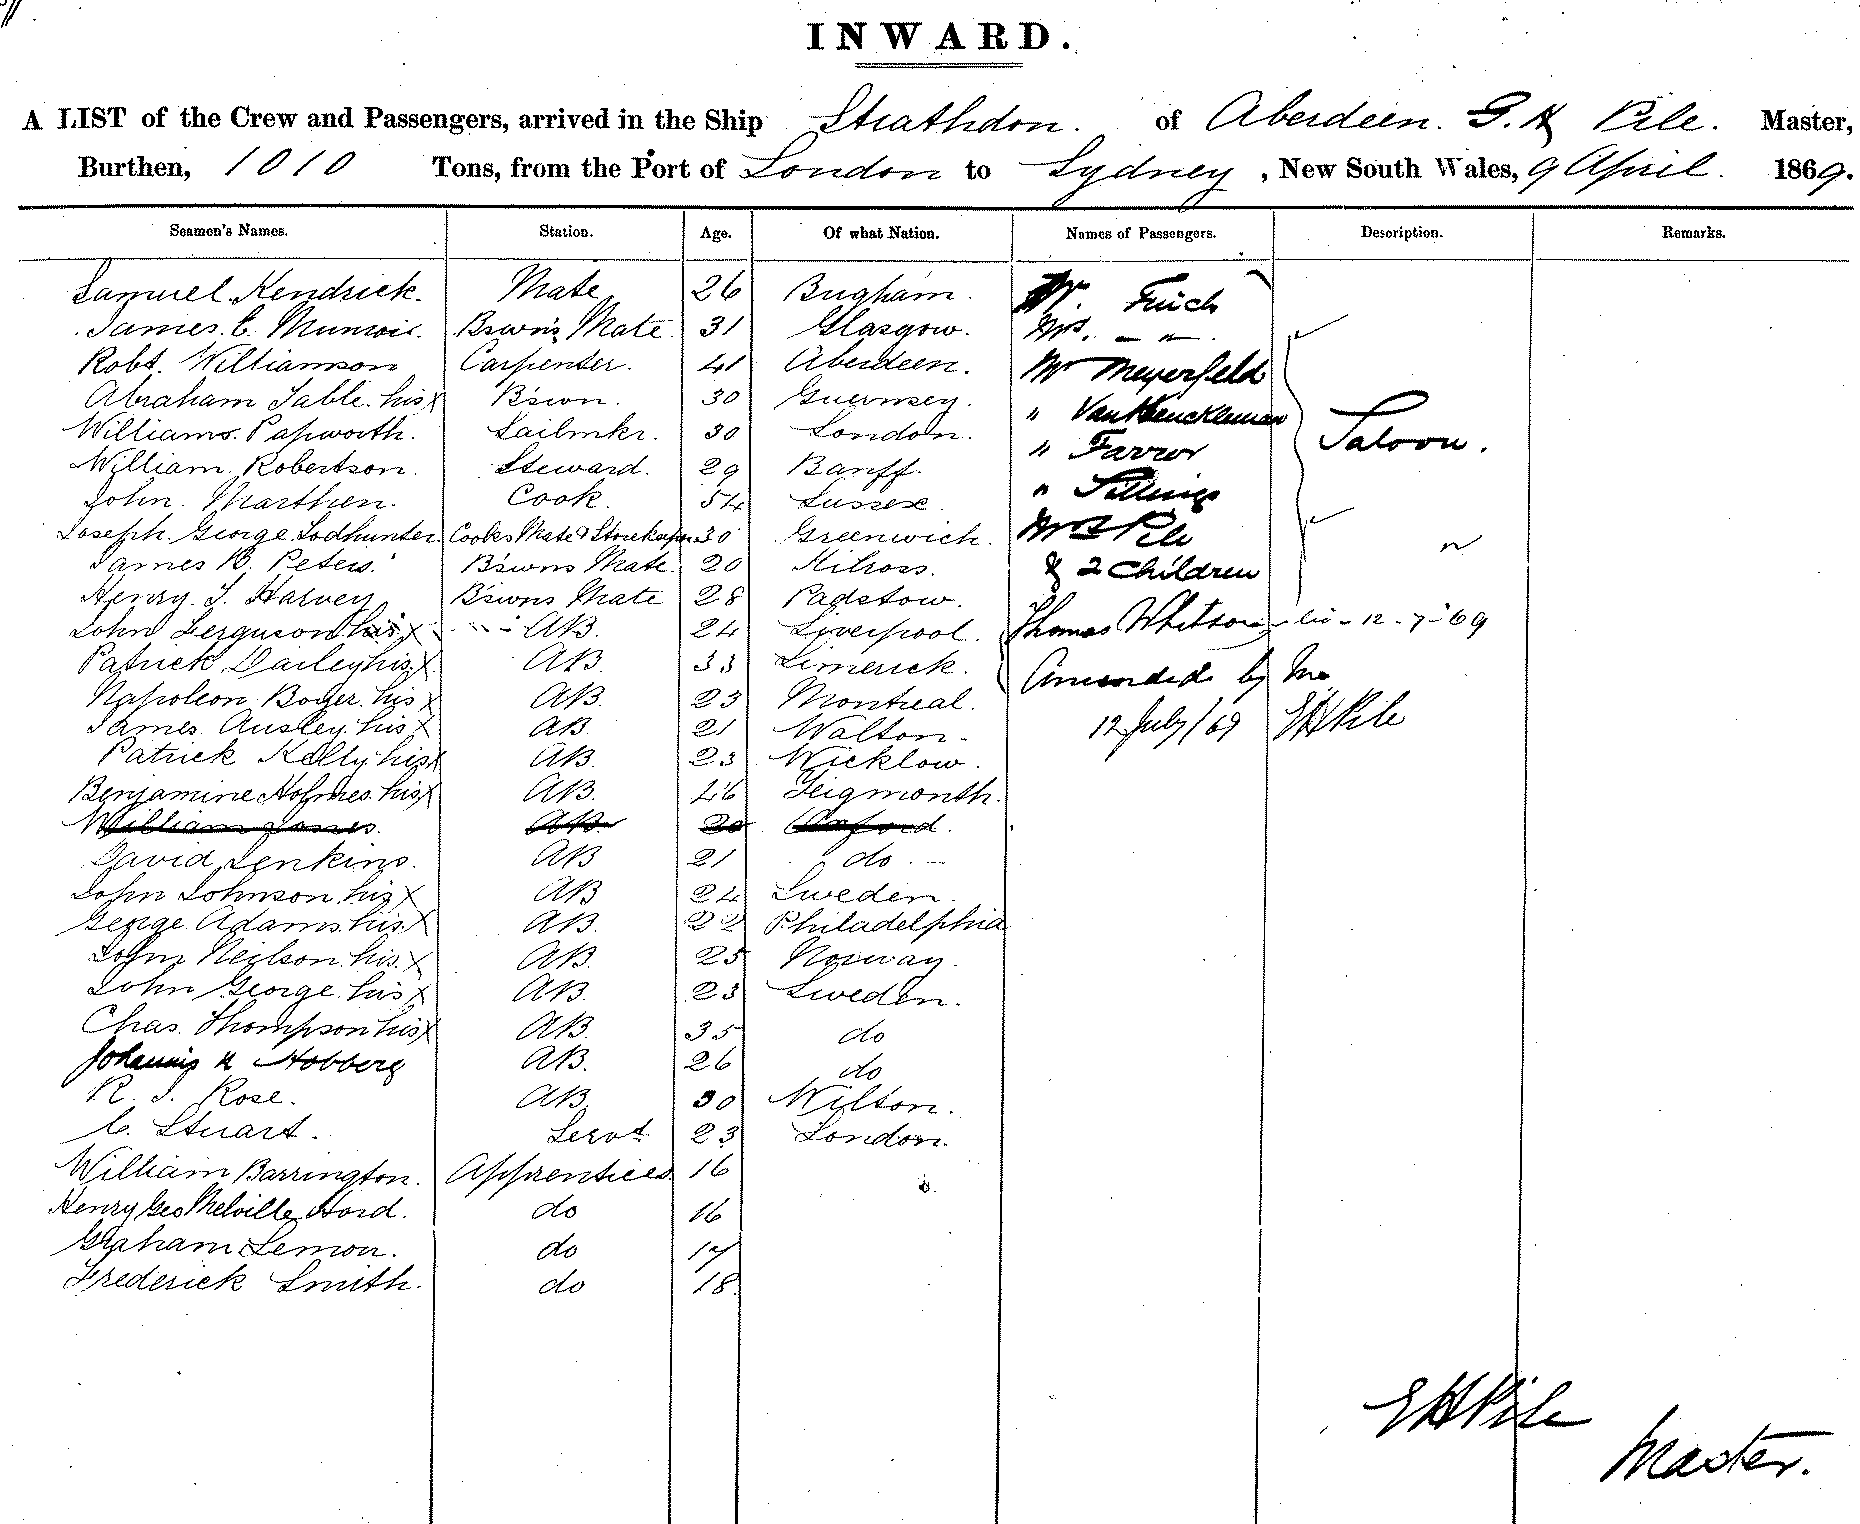 INWARD.
A LIST of the Crew and Passengers, arrived in the Ship Strathdon. of Aberdeen. G. H Pile. Master,
Burthen, 1010 Tons, from the Port of London to Sydney, New South Wales, 9 April. 1869.
Seamen's Names. Station. Age. Of what Nation. Names of Passengers. Description. Remarks.
Samuel Kendrick. Mate 26 Mr. Finch
James C. Munroie. Bswn's Mate 31 Glasgow. Mrs. — " —
Robt. Williamson Carpenter. 41 Aberdeen. Mr Meyerfeld
Abraham Table his x B'swn. 30 Guernsey. " VanHeuckleman
Williams. Papworth. Sailmkr. 30 London. " Farror Saloon.
William Robertson. Steward. 29 Banff.
John Marthen. Cook. 54 Sussex. "
Joseph George Todhunter Cooks Mate & Storekeeper 30 Greenwich. Mrs Pile
James B. Peters. B'swns Mate. 20 Kilross. & 2 Children "
Henry J. Harvey B'swns Mate 28 Padstow.
John Ferguson his x AB. 24 Liverpool. Thomas Whitson - 12-7-69
Patrick Dailey his x AB. 33 Limerick. Amended by Me
Napoleon Boyer his x AB. 23 Montreal. 12 July/69 GHPile
James Ausley his x AB. 21 Walton.
Patrick Kelly his x AB. 23 Wicklow.
Benjamine Holmes his x AB. 46 Teigmonth.
William Jones. AB. 20 Oxford.
David Jenkins. AB 21 do
John Johnson his x AB 24 Sweden.
George Adams his x AB. 22 Philadelphia
John Neilson his x AB. 25 Norway.
John George his x AB. 23 Sweden.
Chas. Thompson his x AB. 35 do
Johannis H Hobberg AB. 26 do
R. J. Rose. AB. 30 Wilton.
C. Stuart. Servt 23 London.
William Barrington. Apprentices 16
Henry Geo Melville Hord. do 16
Graham Lemon. do 17
Frederick Smith. do 18
GHPile
Master.